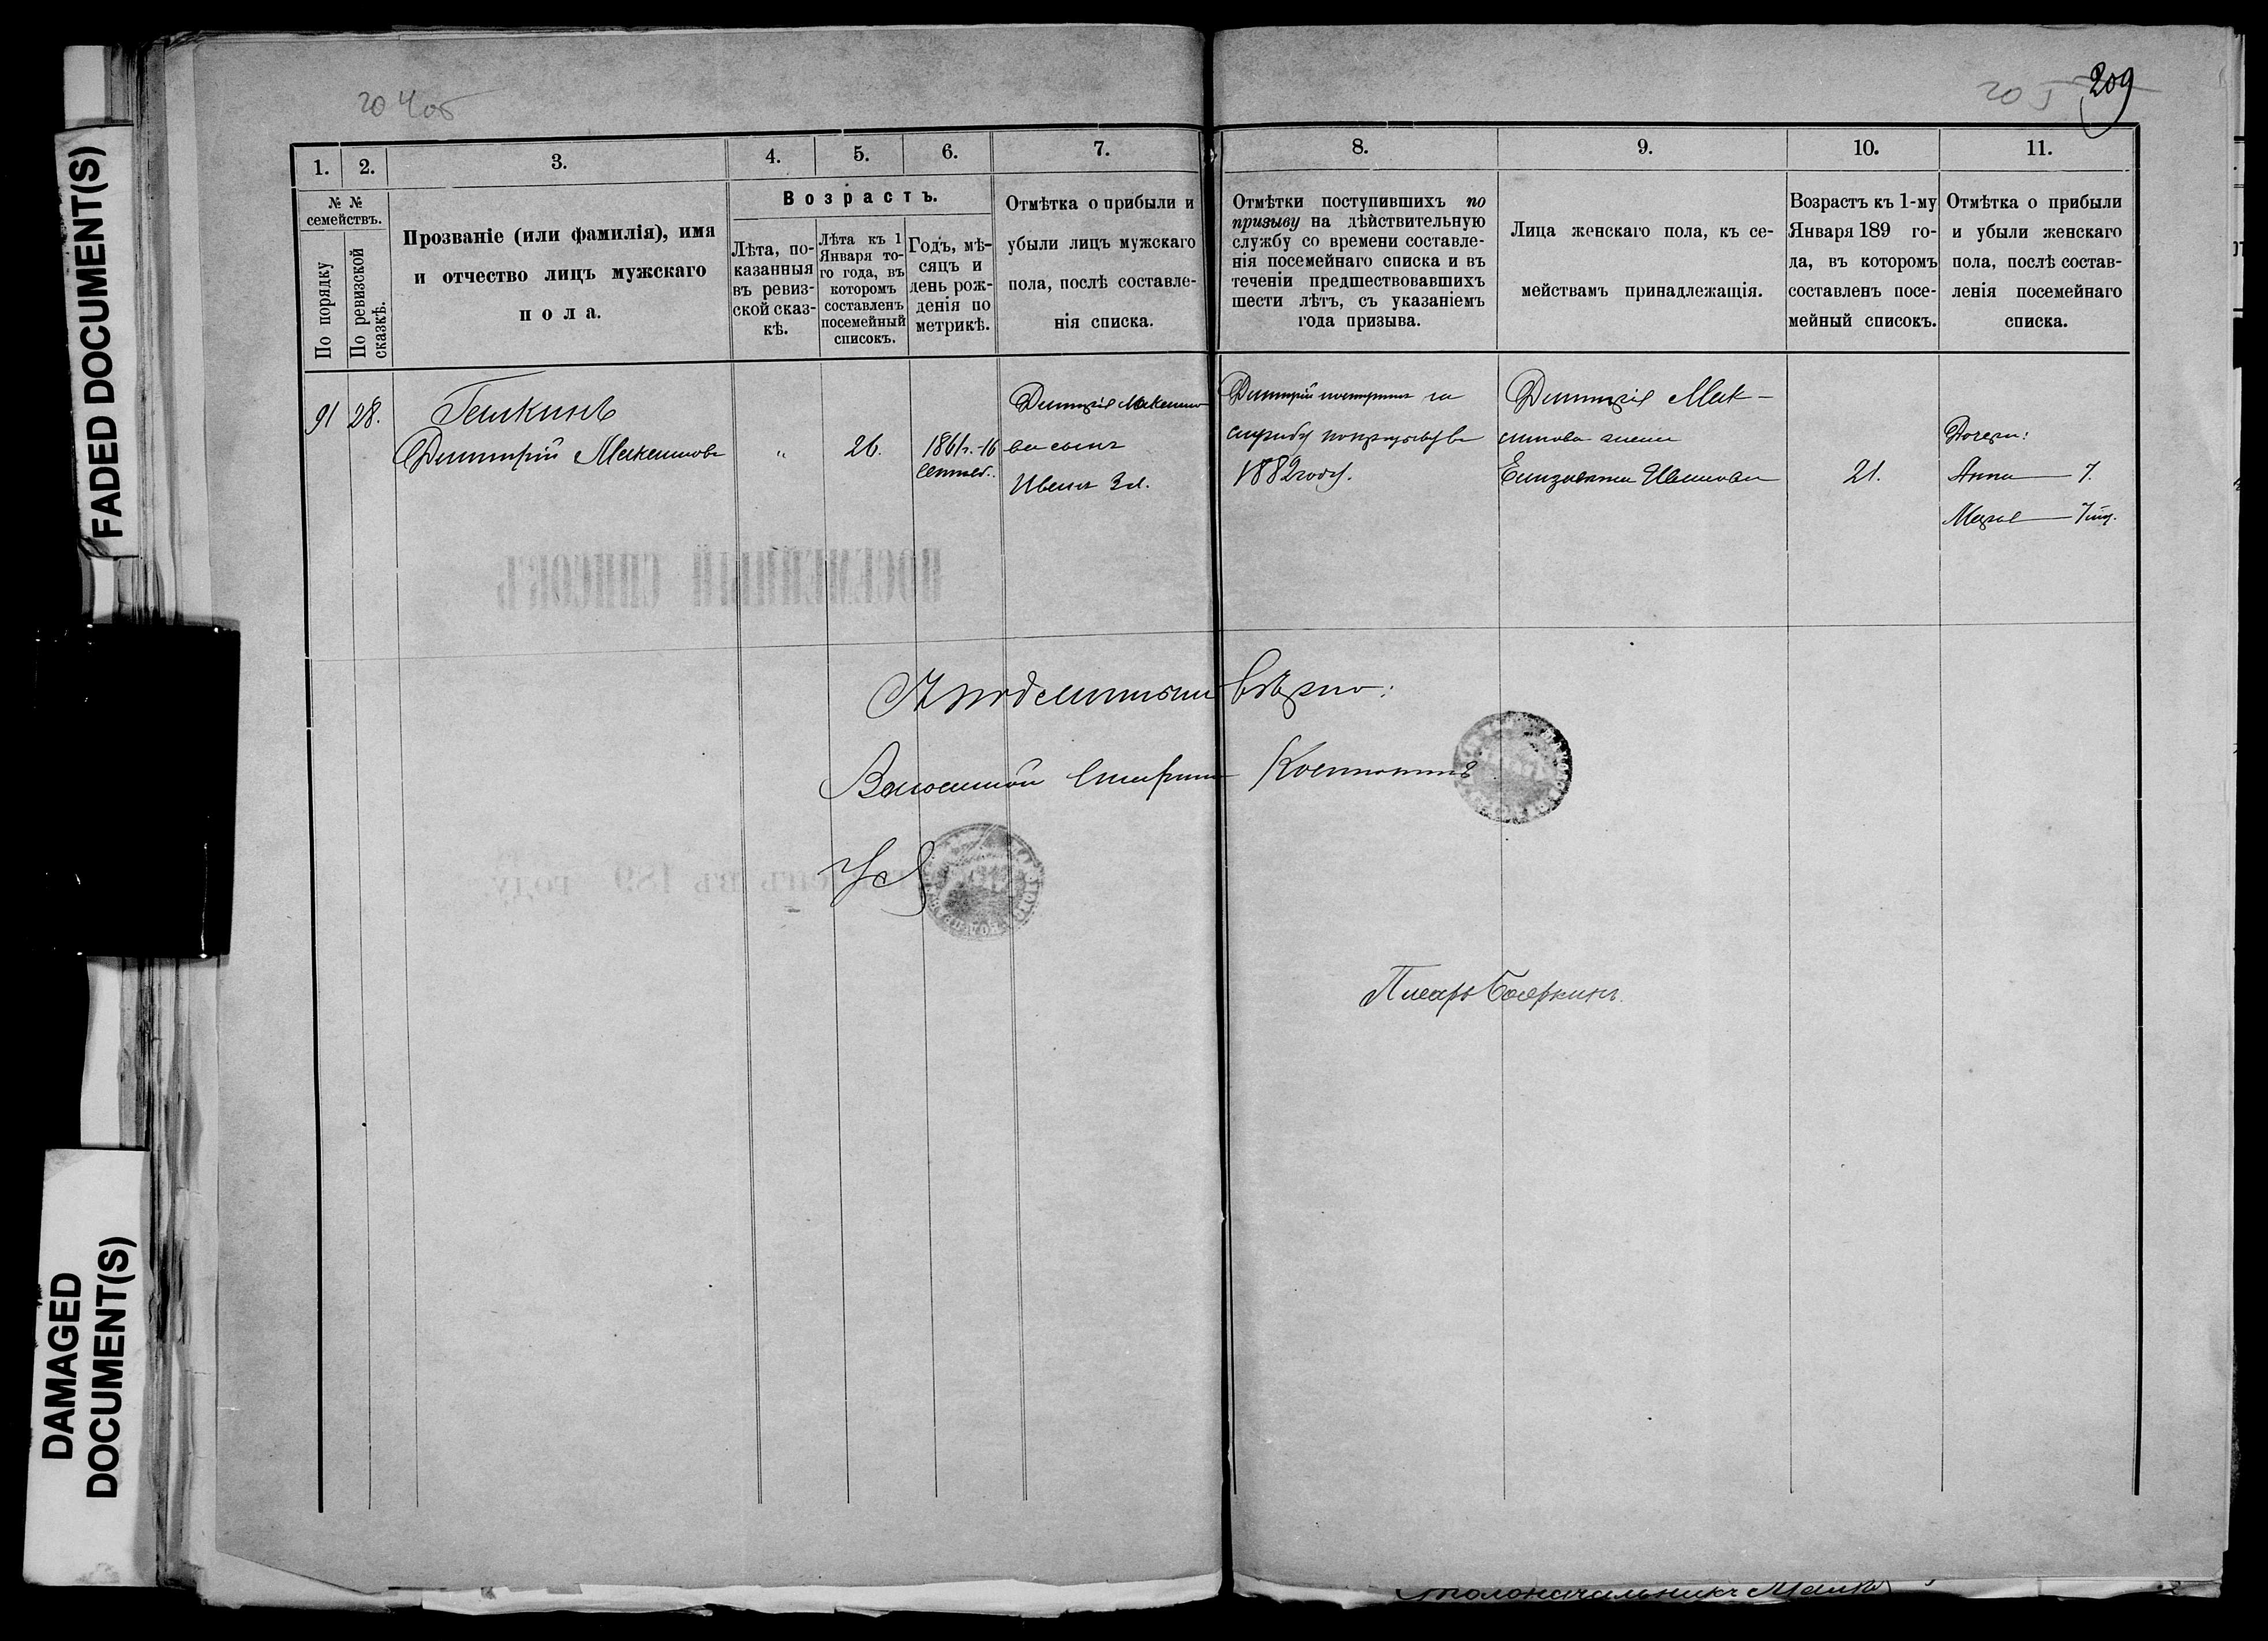 FADED DOCUMENT(S)
DAMAGED
DOCUMENT(S)
204об
205
209
1. 2. 3. 4. 5. 6. 7. 8. 9. 10. 11.
№ №
семействъ.
По порядку
По ревизской
сказкѣ.
Прозваніе (или фамилія), имя
и отчество лицъ мужскаго
пола.
Возрастъ.
Лѣта, по-
казанныя
въ ревиз-
ской сказ-
кѣ.
Лѣта къ 1
Января то-
го года, въ
которомъ
составленъ
посемейный
списокъ.
Годъ, мѣ-
сяцъ и
день рож-
денія по
метрикѣ.
Отмѣтка о прибыли и
убыли лицъ мужскаго
пола, послѣ составле-
нія списка.
Отмѣтки поступившихъ по
призыву на дѣйствительную
службу со времени составле-
нія посемейнаго списка и въ
теченіи предшествовавшихъ
шести лѣтъ, съ указаніемъ
года призыва.
Лица женскаго пола, къ се-
мействамъ принадлежащія.
Возрастъ къ 1-му
Января 189 го-
да, въ которомъ
составленъ посе-
мейный списокъ.
Отмѣтка о прибыли
и убыли женскаго
пола, послѣ состав-
ленія посемейнаго
списка.
91 28.
Димитрій Максимовъ
„
26.
1861г. 16
сентяб.
Димитрія Максимо-
ва сынъ
Иванъ 3 л.
Димитрій поступилъ на
службу по призыву въ
1882 году.
Димитрія Мак-
симова жена
Елизавета Иванова
21.
Дочери:
Анна 7.
Марья
ПОСЕМЕЙНЫЙ СПИСОКЪ
въ 189 году.
Съ подлиннымъ вѣрно:
Волостной Старшина
Писарь Бояркинъ.
Столоначальникъ